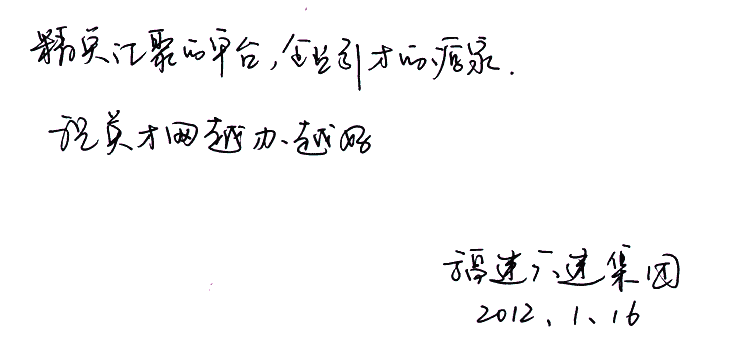 精英汇聚的平台,企业引才的源泉.
祝英才网越办越好
福建六建集团
2012、1、16